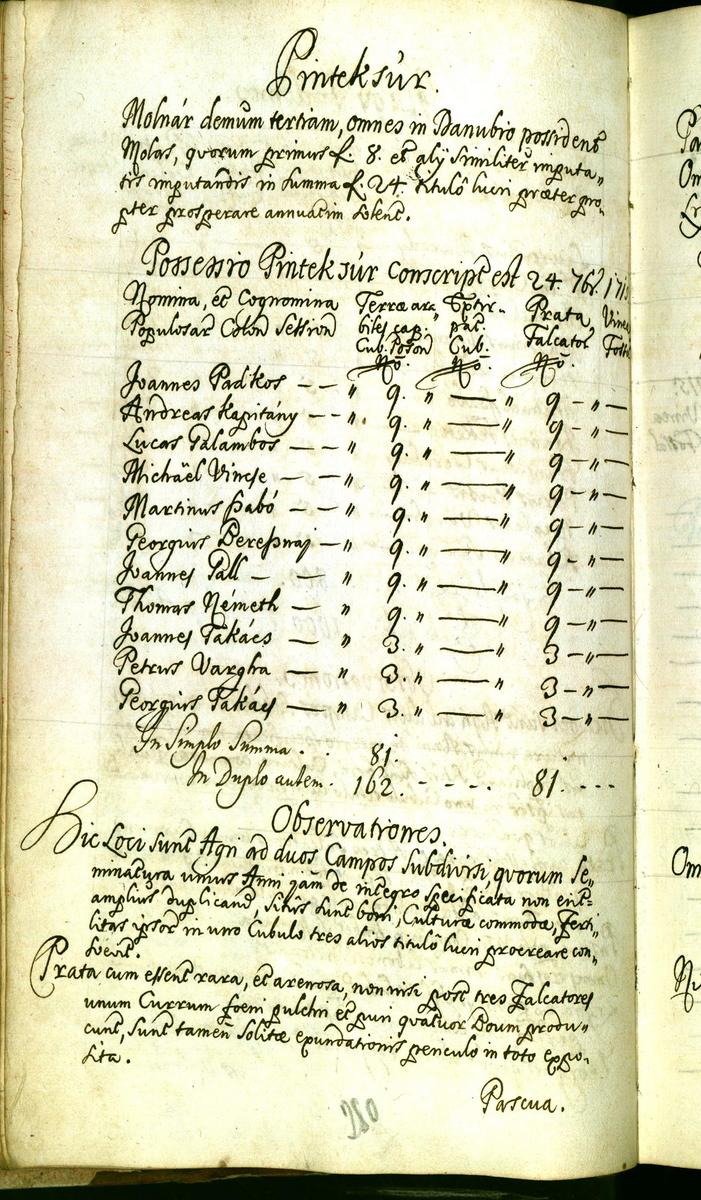 Pinteksúr.
Molnár demùm tertiam, omnes in Danubio possident
Molas, quorum primus f. 8. et alij similiter imputa„
tis imputandis in summa f. 24. titulô lucri præter pro„
pter prosperare annuatim solent.
Possessio Pinteksúr Conscript est 24. 7br.
Nomina, et Cognomina Terræ ara„ Prata Vineæ
Populosar Colon Session biles cap. pac. Falcator Fosso
Cub. Poson Cub.
No. No. No.
Joannes Padkos — — „ 9. „ — „ 9 – „ —
Andreas Kapitány – – „ 9. „ — „ 9 – „ —
Lucas Galambos — — „ 9. „ — „ 9 – „ —
Michäel Vincze — — „ 9. „ — „ 9 – „ —
Martinus Szabó — — „ 9. „ — „ 9 – „ —
Georgius Beresznaj — „ 9. „ — „ 9 – „ —
Joannes Gall — — „ 9. „ — „ 9 – „ —
Thomas Németh — „ 9. „ — „ 9 – „ —
Joannes Takács — „ 3. „ — „ 3 – „ —
Petrus Vargha — „ 3. „ — „ 3 – „ —
Georgius Takács — „ 3. „ — „ 3 – „ —
In Simplo Summa . . 81.
In Duplo autem . 162. - - - - 81. ...
Observationes.
Hic Loci sunt Agri ad duos Campos subdivisi, quorum se„
minatura unius Anni jam de integro specificata non erit
amplius duplicand, sitûs sunt boni, Culturæ commodæ, ferti„
litas ipsor in uno Cubulo tres alios titulô lucri procreare con„
svevit.
Prata cum essent rara, et arenosa, non nisi post tres Falcatores
unum Currum foeni pulchri et puri quatuor Boum produ„
cunt, sunt tamen solitæ expundationis periculo in toto expo„
sita.
Pascua.
280